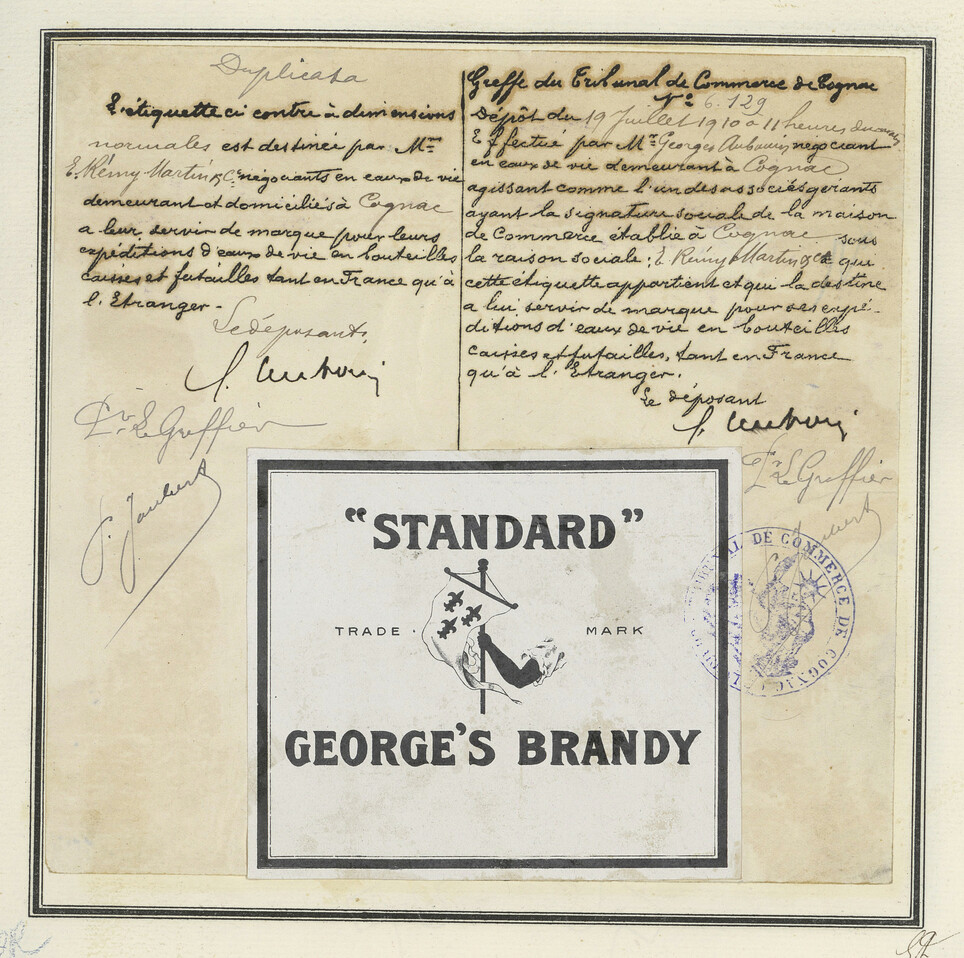 Duplicata
L'étiquette ci contre à dimensions
normales est destinée par Mrs
E. Rémy Martin & Cie négociants en eaux de vie
demeurant et domiciliés à Cognac
a leur servir de marque pour leurs
expéditions d'eaux de vie en bouteilles
caisses et futailles tant en France qu'à
l'Etranger.
Le déposants,
P. Le Greffier
J. Joubert
Greffe du Tribunal de Commerce de Cognac
No 6.129
Dépôt du 19 Juillet 1910 à 11 heures du
Effectué par Mr Georges Auboin négociant
en eaux de vie demeurant à Cognac
agissant comme l'un des associés gérants
ayant la signature sociale de la maison
de Commerce établie à Cognac sous
la raison sociale: E. Rémy Martin & Cie qui
cette étiquette appartient et qui la destine
a lui servir de marque pour ses expé-
ditions d'eaux de vie en bouteilles
caisses et futailles, tant en France
qu'à l'Etranger.
Le déposant
Le Greffier
"STANDARD"
TRADE MARK
GEORGE'S BRANDY
TRIBUNAL DE COMMERCE DE COGNAC